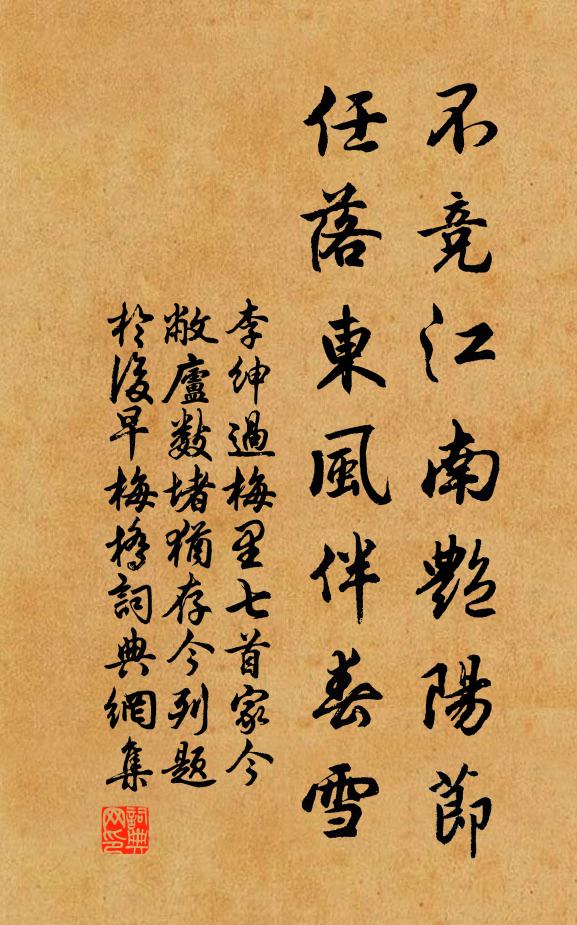 不竞江南艷陽節
任落東風伴春雪
李紳過梅里七首家今
敝廬數堵猶存今列題
於後早梅橋詞典網集
詞典网印